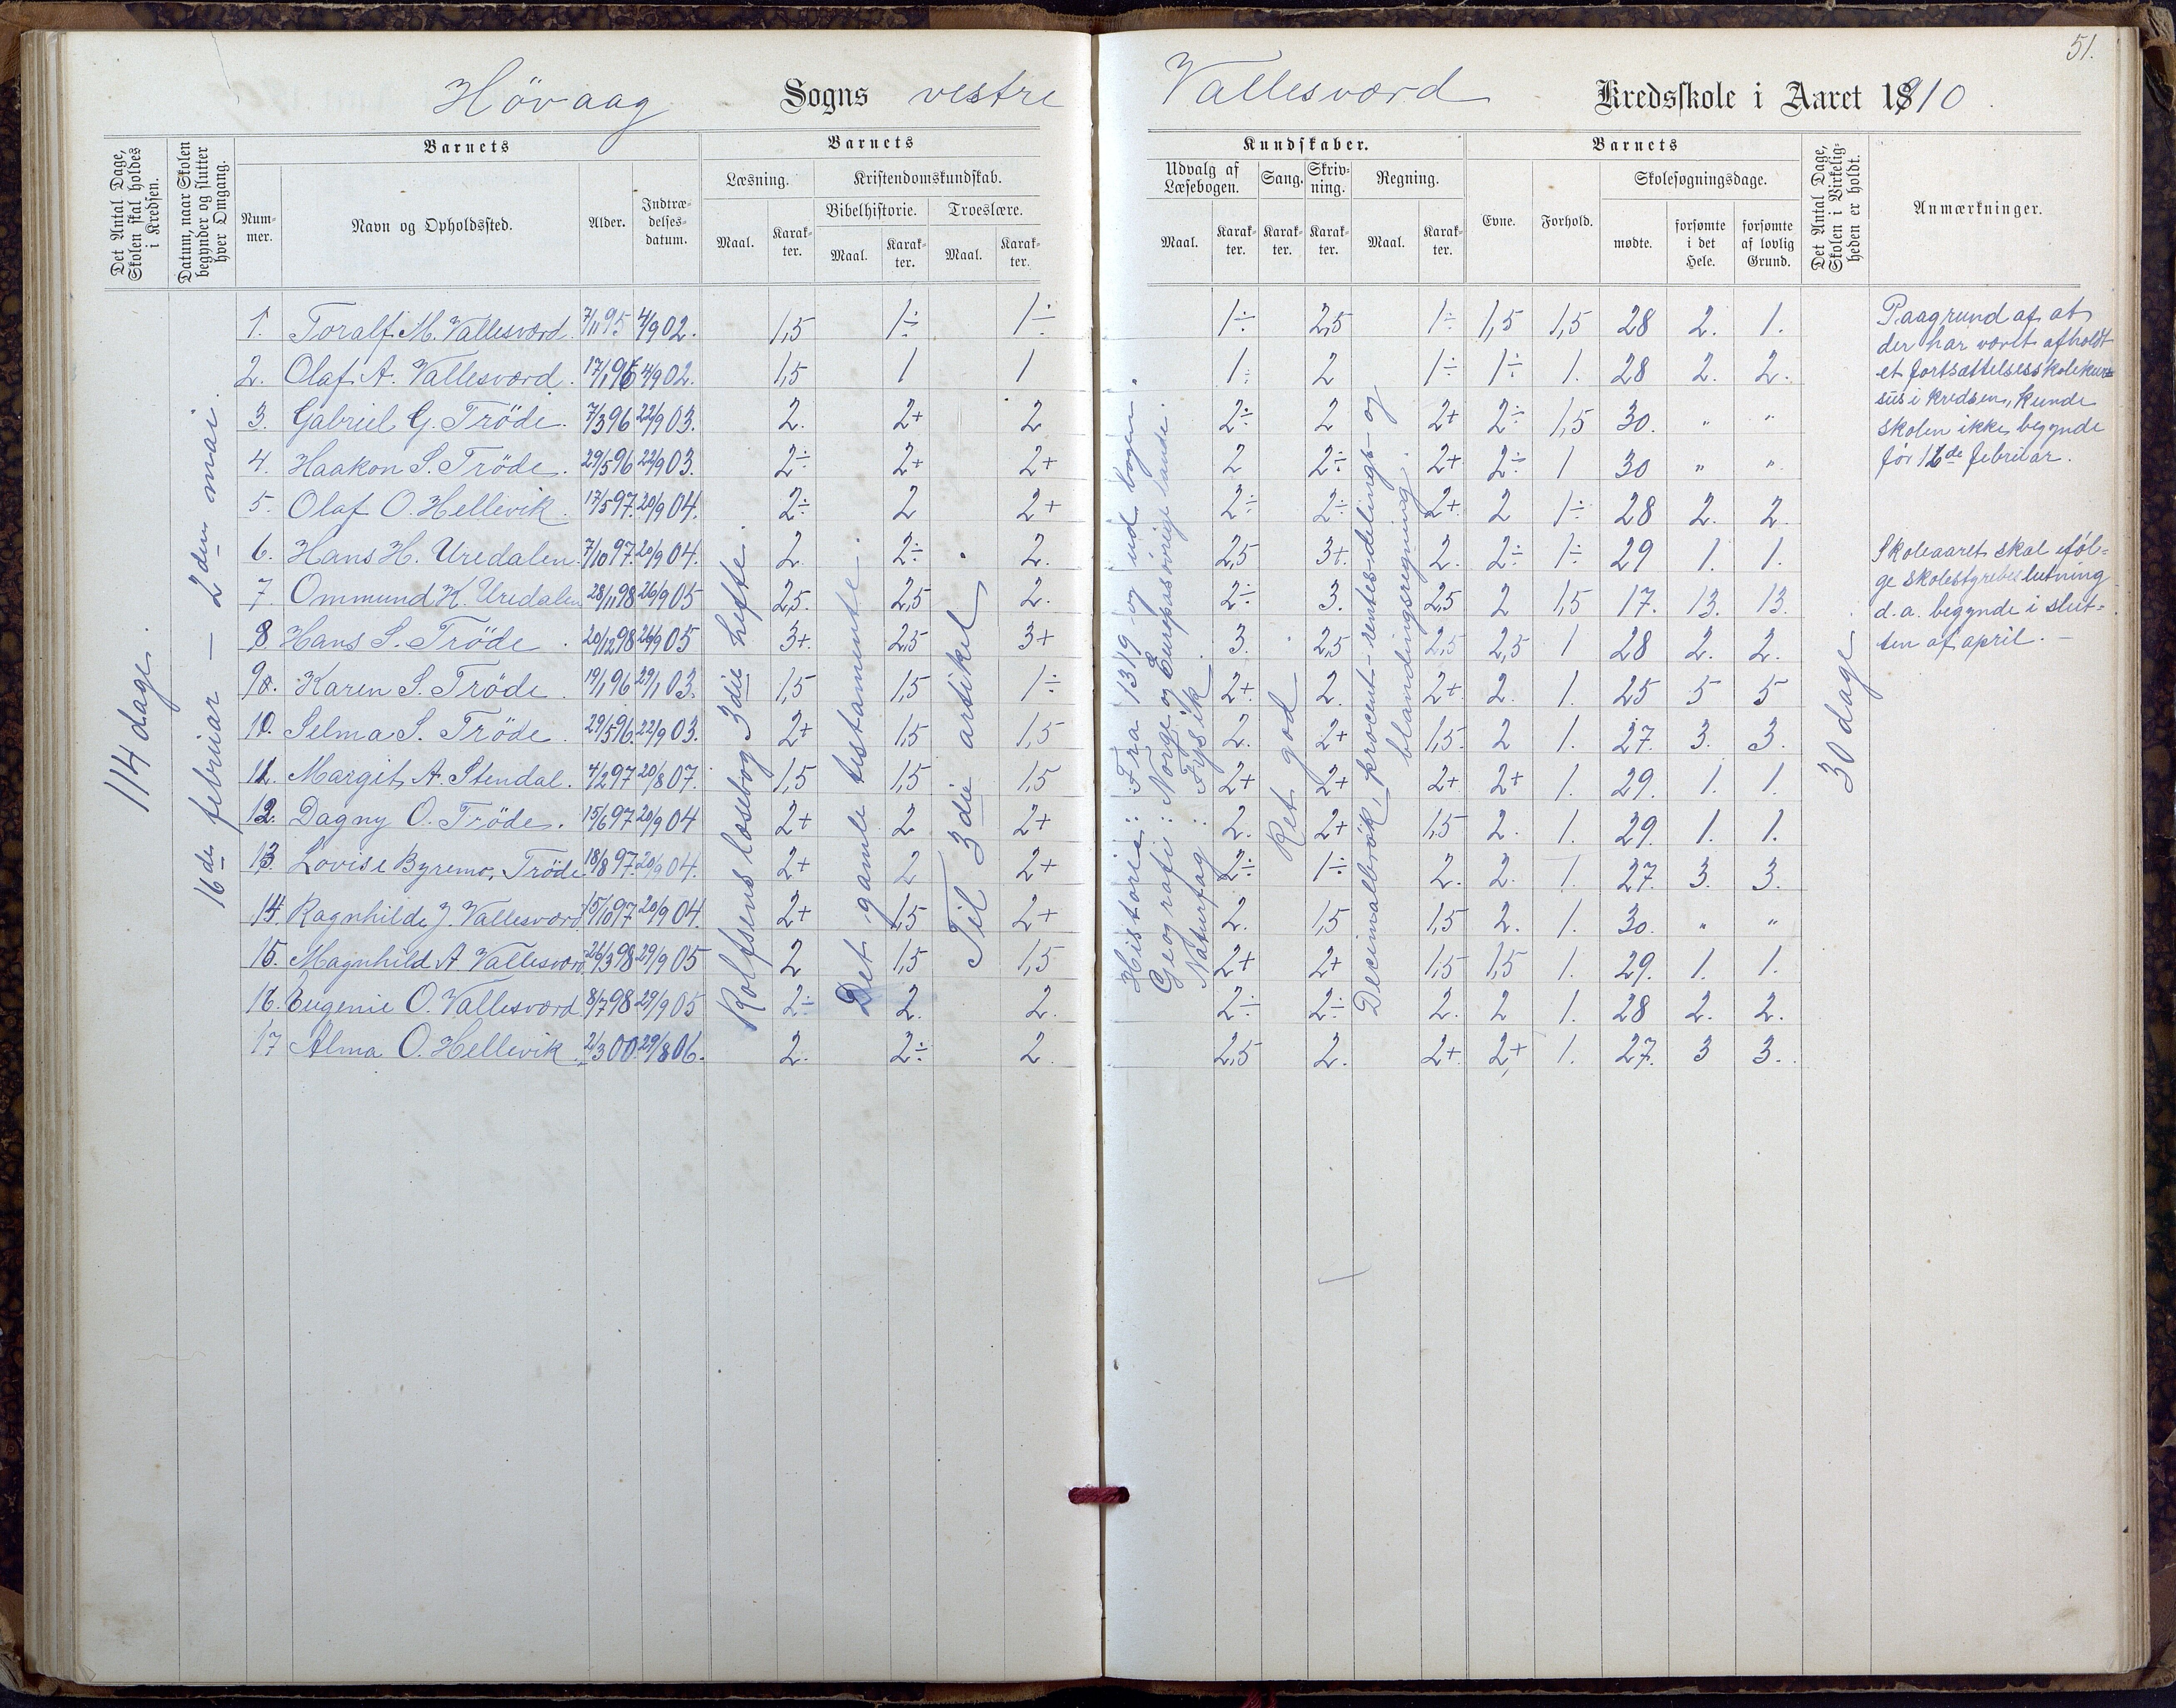 51.
Hövaag Sogns vestre Vallesværd Kredsskole i Aaret 1910.
Det Antal Dage, Skolen skal holdes i Kredsen.
Datum, naar Skolen begynder og slutter hver Omgang.
Barnets
Nummer.
Navn og Opholdssted.
Alder.
Indtrædelsesdatum.
Barnets
Læsning.
Maal.
Karakter.
Kristendomskundskab.
Bibelhistorie.
Maal.
Karakter.
Troeslære.
Maal.
Karakter.
Kundskaber.
Udvalg af Læsebogen.
Maal.
Karakter.
Sang.
Karakter.
Skrivning.
Karakter.
Regning.
Maal.
Karakter.
Barnets
Evne.
Forhold.
Skolesøgningsdage.
mødte.
forsømte i det Hele.
forsømte af lovlig Grund.
Det Antal Dage, Skolen i Virkeligheden er holdt.
Anmærkninger.
114 dage.
16de februar — 2den mai.
Rolfsens læsebog 3die hefte.
Det gamle testamente.
Til 3die artikel
Historie: Fra 1319 og ud bogen.
Geografi: Norge og Europas øvrige lande.
Naturfag: Fysik
Ret god
Decimalbrøk, procent- rentes- delings- og
blandingsregning.
30 dage.
1. Toralf M. Vallesværd. 7/11 95 4/9 02. 1,5 1÷ 1÷ 1÷ 2,5 1÷ 1,5 1,5 28 2. 1.
2. Olaf A. Vallesværd. 17/1 96 4/9 02. 1,5 1 1 1÷ 2 1÷ 1÷ 1. 28 2. 2.
3. Gabriel G. Tröde. 7/3 96 22/9 03. 2. 2+ 2 2÷ 2 2+ 2÷ 1,5 30. " "
4. Haakon S. Tröde. 29/5 96 22/9 03. 2÷ 2+ 2+ 2 2÷ 2+ 2÷ 1 30 " "
5. Olaf O. Hellevik. 17/5 97. 20/9 04. 2÷ 2 2+ 2÷ 2÷ 2+ 2 1÷ 28 2. 2.
6. Hans H. Uredalen. 7/10 97. 20/9 04. 2. 2÷ 2. 2,5 3+ 2. 2÷ 1÷ 29 1. 1.
7. Ommund K. Uredalen 28/11 98 26/9 05 2,5. 2,5 2. 2÷ 3. 2,5 2 1,5 17. 13. 13.
8. Hans S. Tröde. 20/12 98 26/9 05 3+. 2,5 3+ 3. 2,5 2,5 2,5 1 28 2. 2.
9. Karen S. Tröde. 19/1 96 29/1 03. 1,5 1,5 1÷ 2+ 2. 2+ 2. 1. 25 5 5
10. Selma S. Tröde. 29/5 96. 22/9 03. 2+ 1,5 1,5 2. 2+ 1,5. 2 1. 27. 3. 3.
11. Margit A. Stendal. 4/2 97 20/8 07. 1,5 1,5 1,5 2+ 2+ 2+ 2+ 1. 29. 1. 1.
12. Dagny O. Tröde. 15/6 97 20/9 04 2+ 2 2+ 2. 2+ 1,5 2. 1. 29. 1. 1.
13. Lovise Byremo, Tröde. 18/8 97. 20/9 04. 2+ 2 2+ 2÷ 1÷ 2. 2. 1. 27. 3. 3.
14. Ragnhilde J. Vallesværd 15/10 97 20/9 04. 2+ 1,5 2+ 2. 1,5 1,5 2. 1. 30. " "
15. Magnhild A Vallesværd 26/3 98 29/9 05 2 1,5 1,5 2+ 2+ 1,5 1,5 1. 29. 1. 1.
16. Eugenie O. Vallesværd 8/7 98 29/9 05 2÷ 2. 2. 2÷ 2÷ 2. 2 1. 28 2. 2.
17 Alma O. Hellevik. 2/3 00 29/8 06. 2. 2÷ 2. 2,5 2. 2+ 2+ 1. 27. 3 3.
Paagrund af at
der har været afholdt
et fortsættelsesskolekur=
sus i kredsen, kunde
skolen ikke begynde
før 16de februar.
Skoleaaret skal eføl=
ge skolestyrebeslutning
d. a. begynde i slut=
ten af april. —